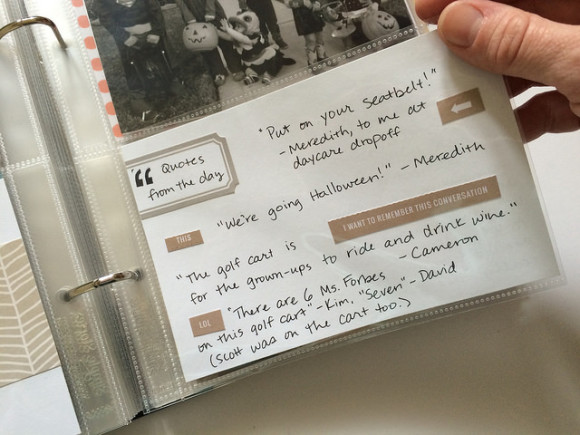 "Put on your seatbelt!"
- Meredith, to me at
daycare dropoff
"Quotes
from the day
"We're going Halloween!" - Meredith
THIS
I WANT TO REMEMBER THIS CONVERSATION
"The golf cart is
for the grown-ups to ride and drink wine."
- Cameron
LOL
"There are 6 Ms. Forbes
on this golf cart" - Kim, "Seven" - David
(Scott was on the cart too.)